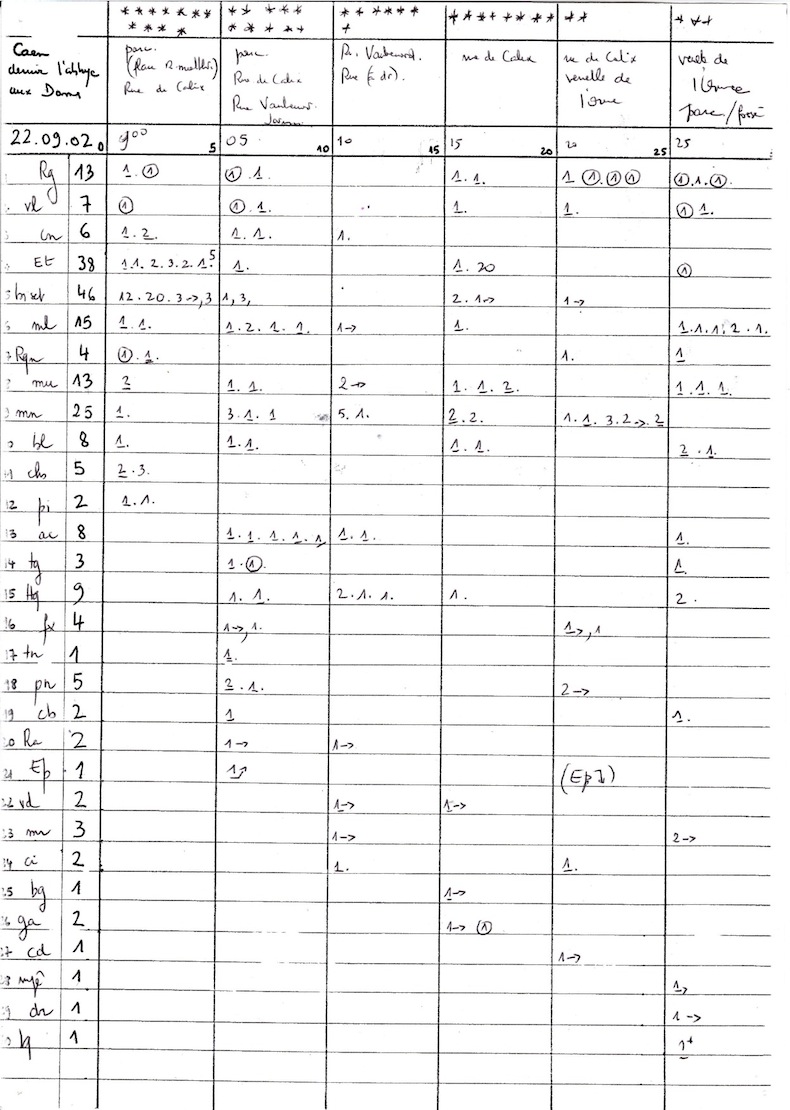 * * * * * * * * * * * * * * * * * * * * * * * * * * * * * * * * * * * * * * * * * * *
Caen
aux Dames
parc.
Rue de Calix
parc.
Rue de Calix
Rue
Rue
rue de Calix
rue de Calix
venelle de
l'orne
parc / fossé
22.09.02 0 9 00 5 05 10 10 15 15 20 20 25 25
Rg 13 1. ① ①.1. 1. 1. 1 ①.①① ①.1.①.
vl 7 ① ①.1. 1. 1. ① 1.
cn 6 1. 2. 1. 1. 1.
Et 38 1.1. 2. 3. 2. 1. 5 1. 1. 20 ①
46 12. 20. 3→,3 1, 3, 2. 1→ 1→
ml 15 1. 1. 1. 2. 1. 1. 1→ 1. 1.1.1. 2. 1.
7 Rgn 4 ①.1. 1. 1
mu 13 2 1. 1. 2→ 1. 1. 2. 1. 1. 1.
mn 25 1. 3. 1. 1 5. 1. 2. 2. 1. 1. 3. 2→. 2
bl 8 1. 1.1. 1. 1. 2. 1.
chs 5 2. 3.
12 pi 2 1. 1.
13 ac 8 1. 1. 1. 1. 1 1. 1. 1.
14 tg 3 1. ①. 1.
15 Hq 9 1. 1. 2. 1. 1. 1. 2.
16 fx 4 1→, 1. 1→, 1
17 tn 1 1.
18 pn 5 2. 1. 2→
19 cb 2 1 1.
20 Ra 2 1→ 1→
21 Ep 1 1↗ (Ep 1)
22 vd 2 1→ 1→
23 mr 3 1→ 2→
24 ci 2 1. 1.
25 bg 1 1→
26 ga 2 1→ ①
27 cd 1 1→
28 1 1→
29 dr 1 1→
1 1+